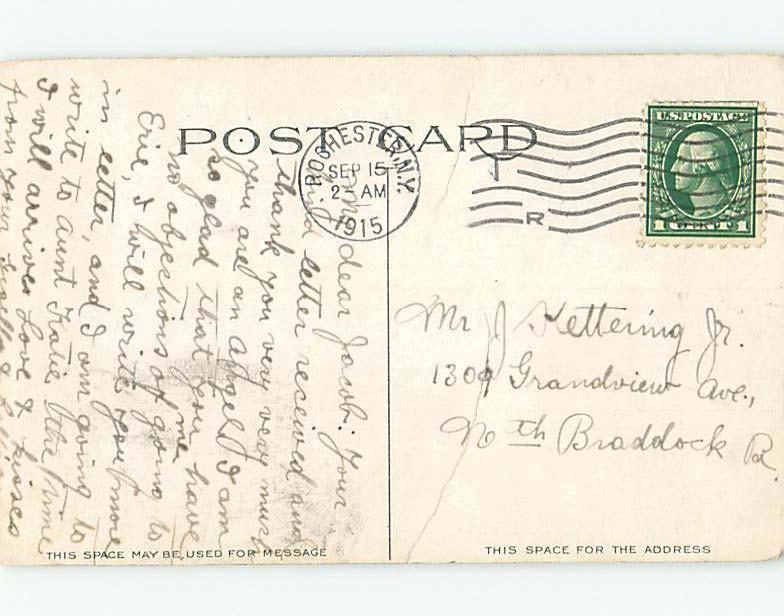 POST CARD
ROCHESTER, N.Y.
SEP 15
2 AM
1915
T
R
U.S. POSTAGE
1 CENT 1
My dear Jacob: Your
kind letter received and
thank you very very much
you are an angel. I am
so glad that you have
no objections of me going to
Erie, I will write you more
in letter, and I am going to
write to aunt Katie the time
I will arrive. Love & kisses
from your
Mr J Kettering Jr.
1309 Grandview Ave.,
Nth Braddock Pa.
THIS SPACE MAY BE USED FOR MESSAGE
THIS SPACE FOR THE ADDRESS